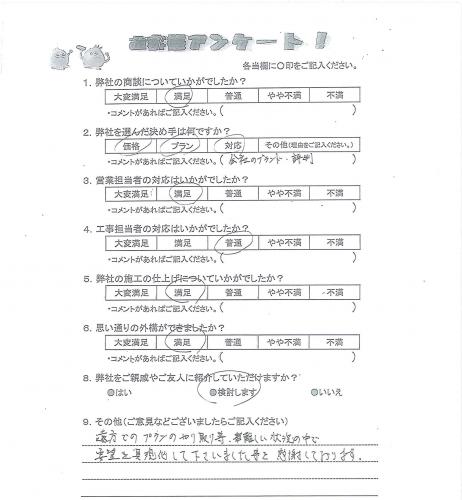 お客様アンケート！
各当欄に〇印をご記入ください。
1. 弊社の商談についていかがでしたか？
大変満足 満足 普通 やや不満 不満
・コメントがあればご記入ください。(
2. 弊社を選んだ決め手は何ですか？
価格 プラン 対応 その他(理由をご記入ください。)
・コメントがあればご記入ください。( 会社のブランド・評判
3. 営業担当者の対応はいかがでしたか？
大変満足 満足 普通 やや不満 不満
・コメントがあればご記入ください。(
4. 工事担当者の対応はいかがでしたか？
大変満足 満足 普通 やや不満 不満
・コメントがあればご記入ください。(
5. 弊社の施工の仕上げについていかがでしたか？
大変満足 満足 普通 やや不満 不満
・コメントがあればご記入ください。(
6. 思い通りの外構ができましたか？
大変満足 満足 普通 やや不満 不満
・コメントがあればご記入ください。(
8. 弊社をご親戚やご友人に紹介していただけますか？
◎はい ◎検討します ◎いいえ
9. その他(ご意見などございましたらご記入ください)
遠方でのプランのやり取り等、難しい状況の中で
要望を具現化して下さいました事と感謝しております。